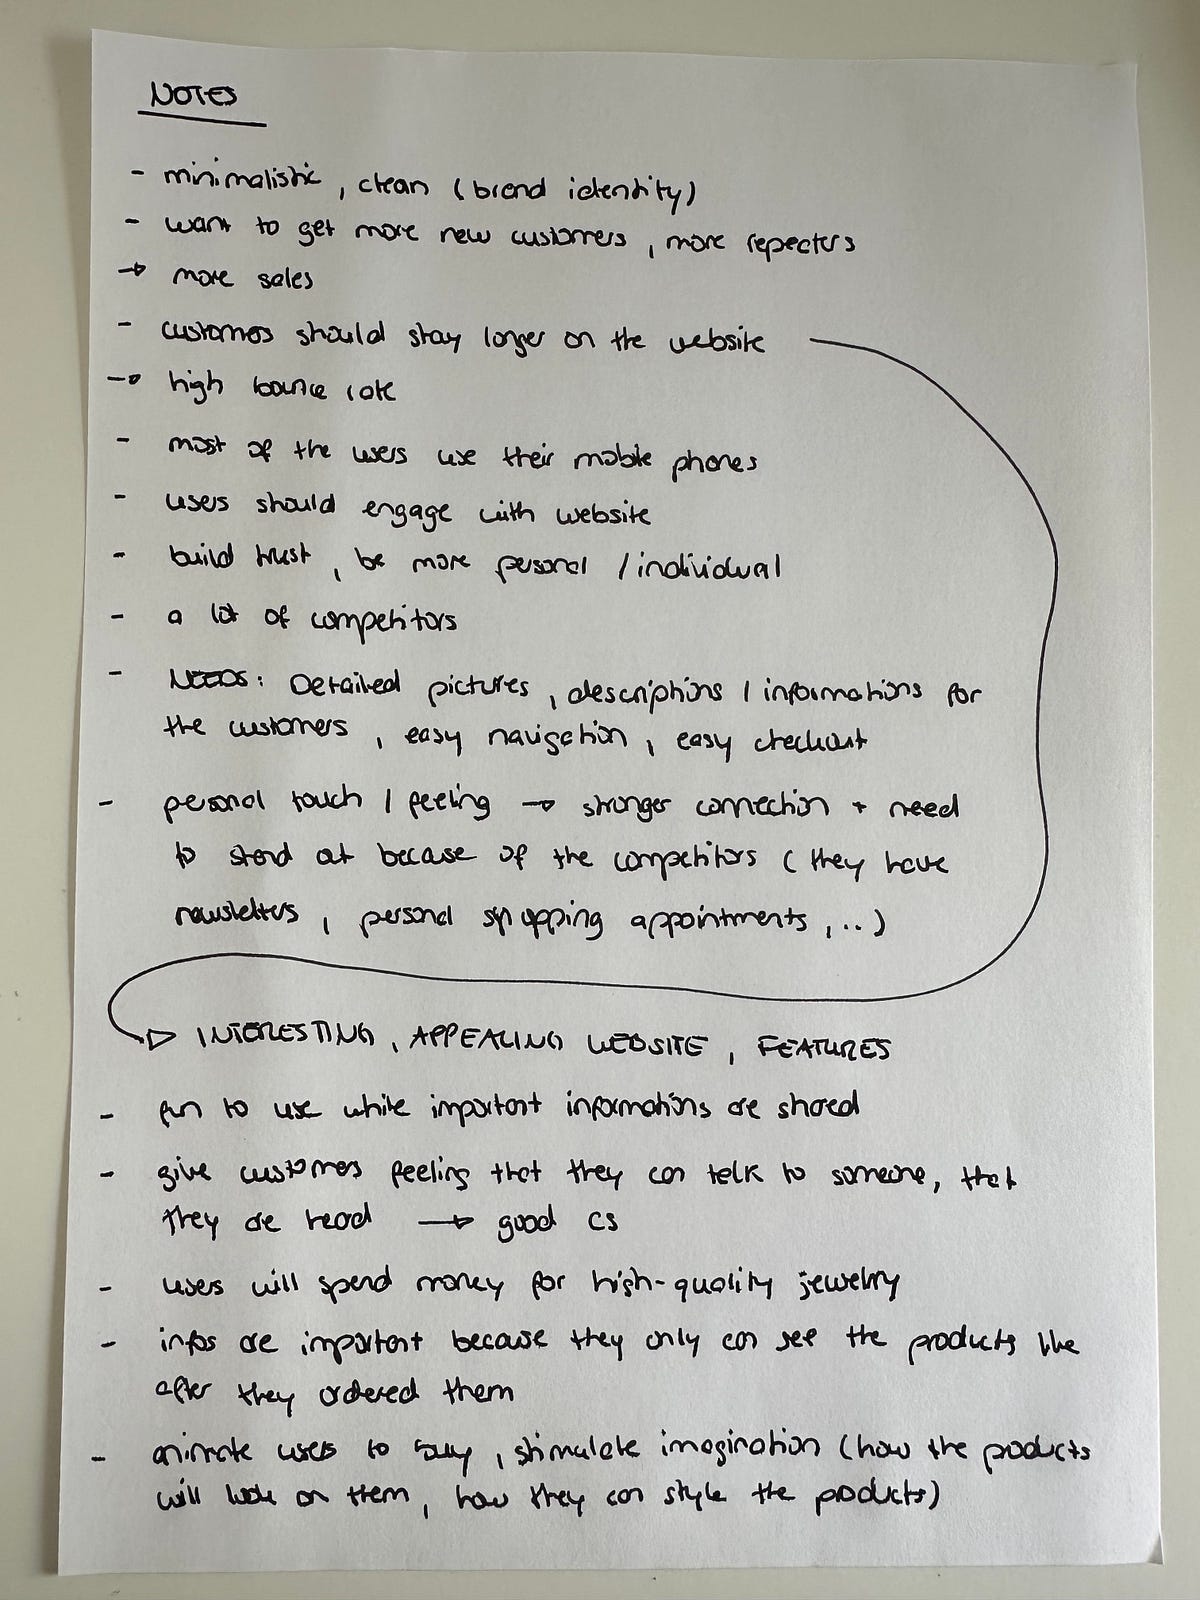 NOTES
- minimalistic, clean (brand identity)
- want to get more new customers, more repeaters
→ more sales
- customers should stay longer on the website
→ high bounce rate
- most of the users use their mobile phones
- users should engage with website
- build trust, be more personal / individual
- a lot of competitors
- NEEDS: Detailed pictures, descriptions / informations for
the customers, easy navigation, easy checkout
- personal touch / feeling → stronger connection + need
to stand out because of the competitors (they have
newsletters, personal shopping appointments, ..)
→ INTERESTING, APPEALING WEBSITE, FEATURES
- fun to use while important informations are shared
- give customers feeling that they can talk to someone, that
they are heard → good CS
- users will spend money for high-quality jewelry
- infos are important because they only can see the products live
after they ordered them
- animate users to buy, stimulate imagination (how the products
will look on them, how they can style the products)